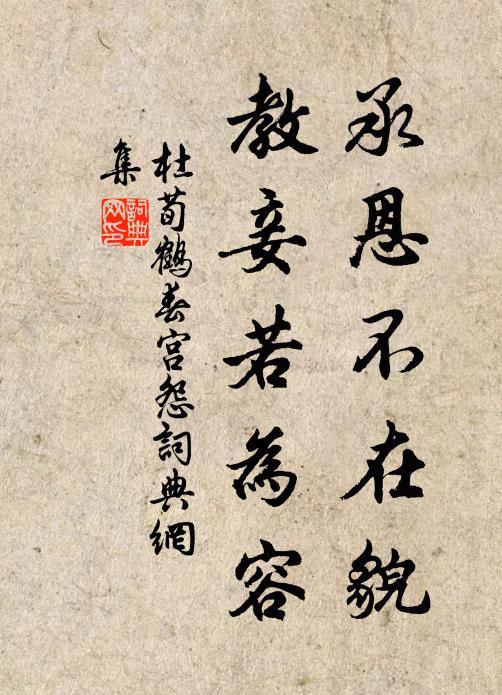 承恩不在貌
教妾若為容
杜荀鶴春宮怨詞典網
集
詞典
網印